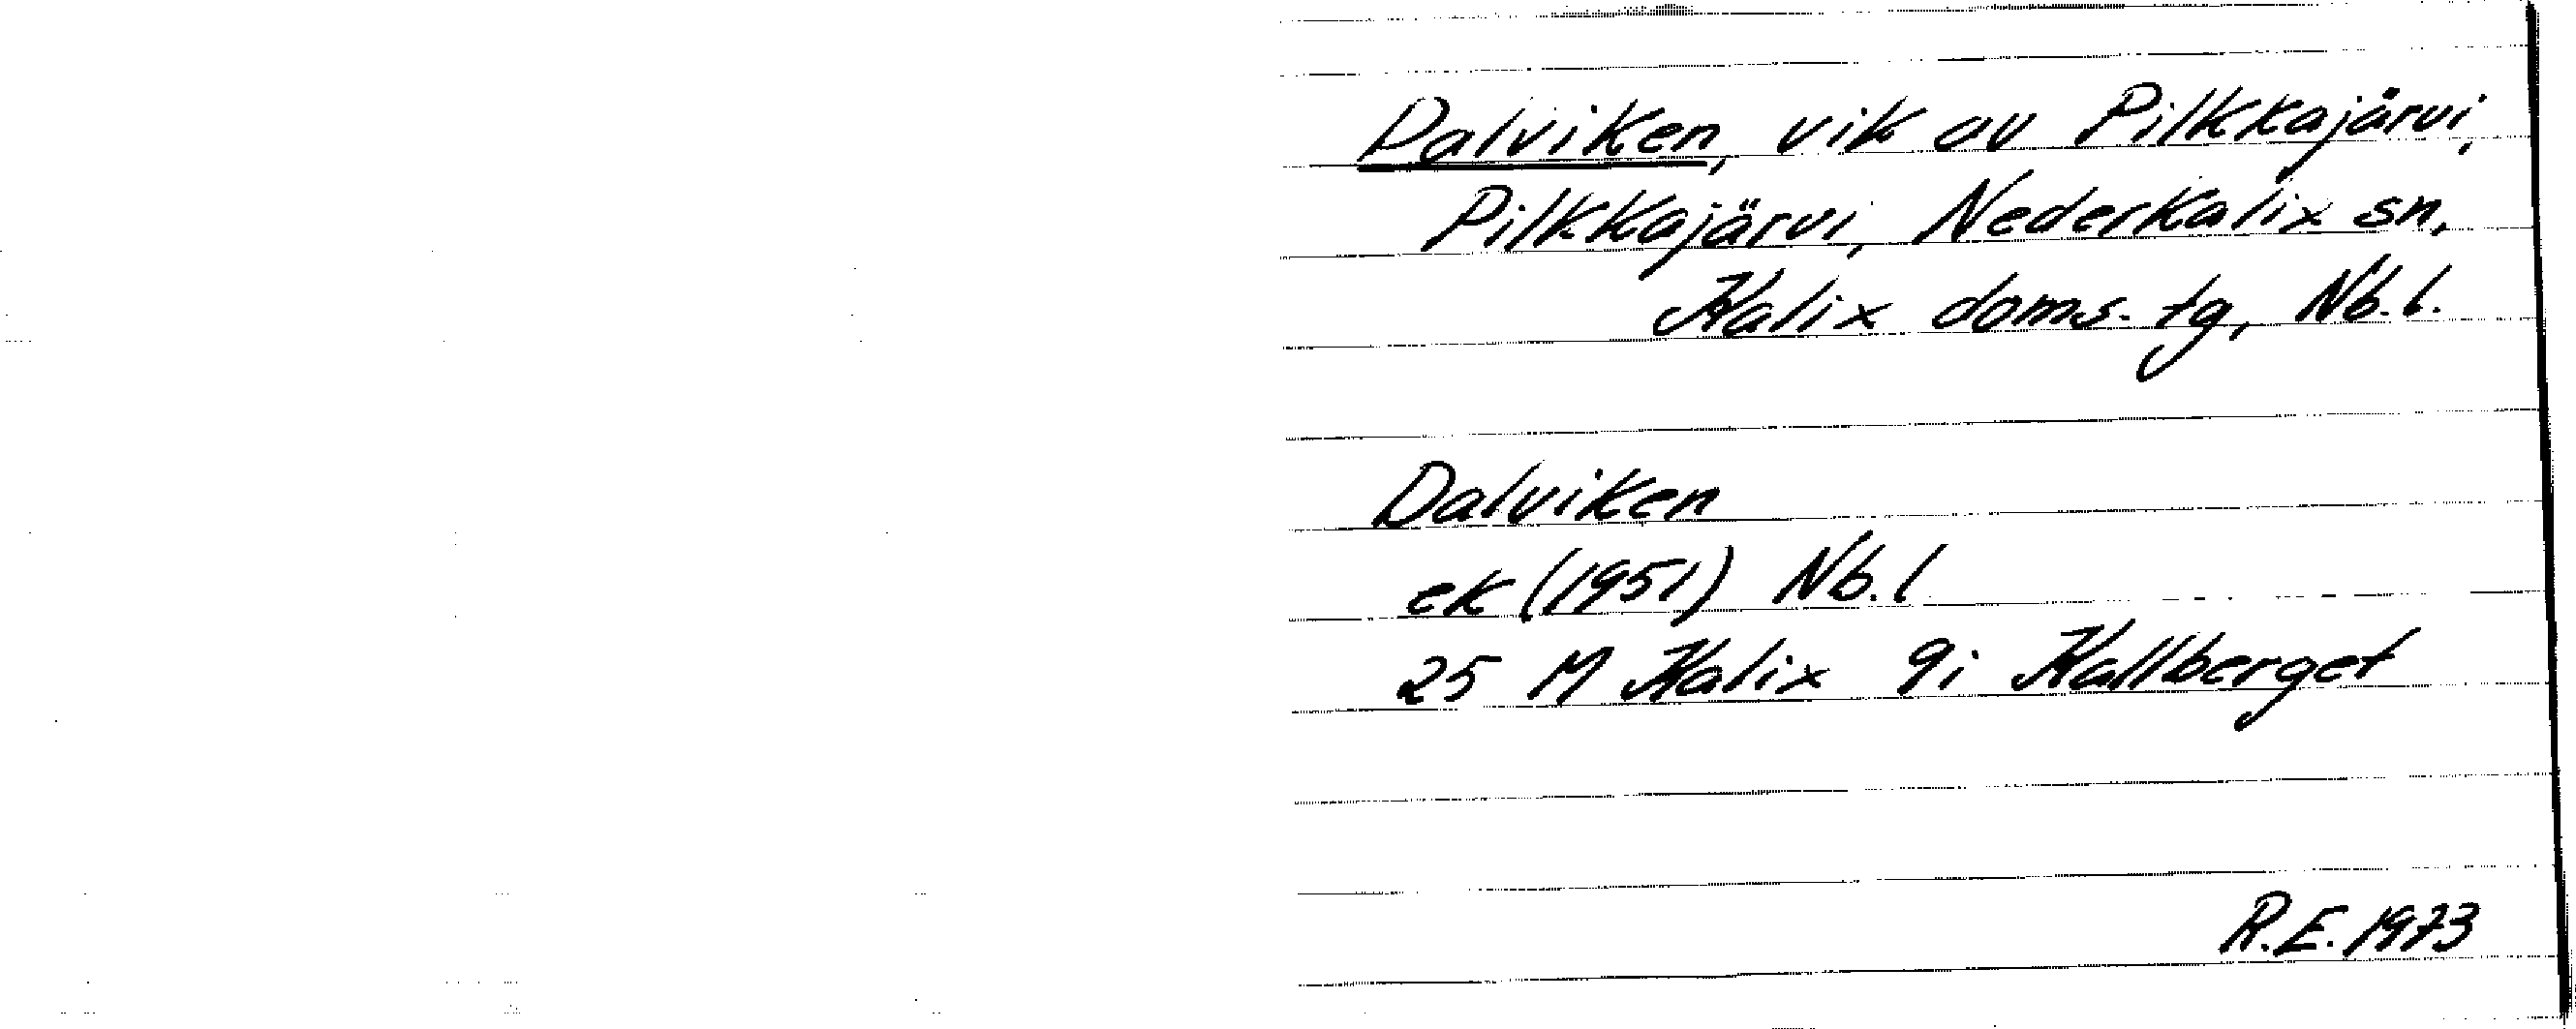 Dalviken, vik av Pilkkajärvi,
Pilkkajärvi, Nederkalix sn,
Kalix doms. tg, Nb.l.
Dalviken
ek (1951) Nb.l
25 M Kalix 9i Kallberget
R.E. 1973